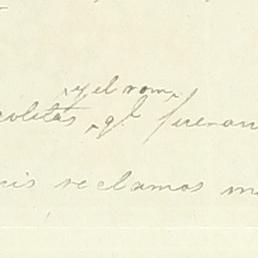 y el rom,
olitas, qe fueron
is reclamos m